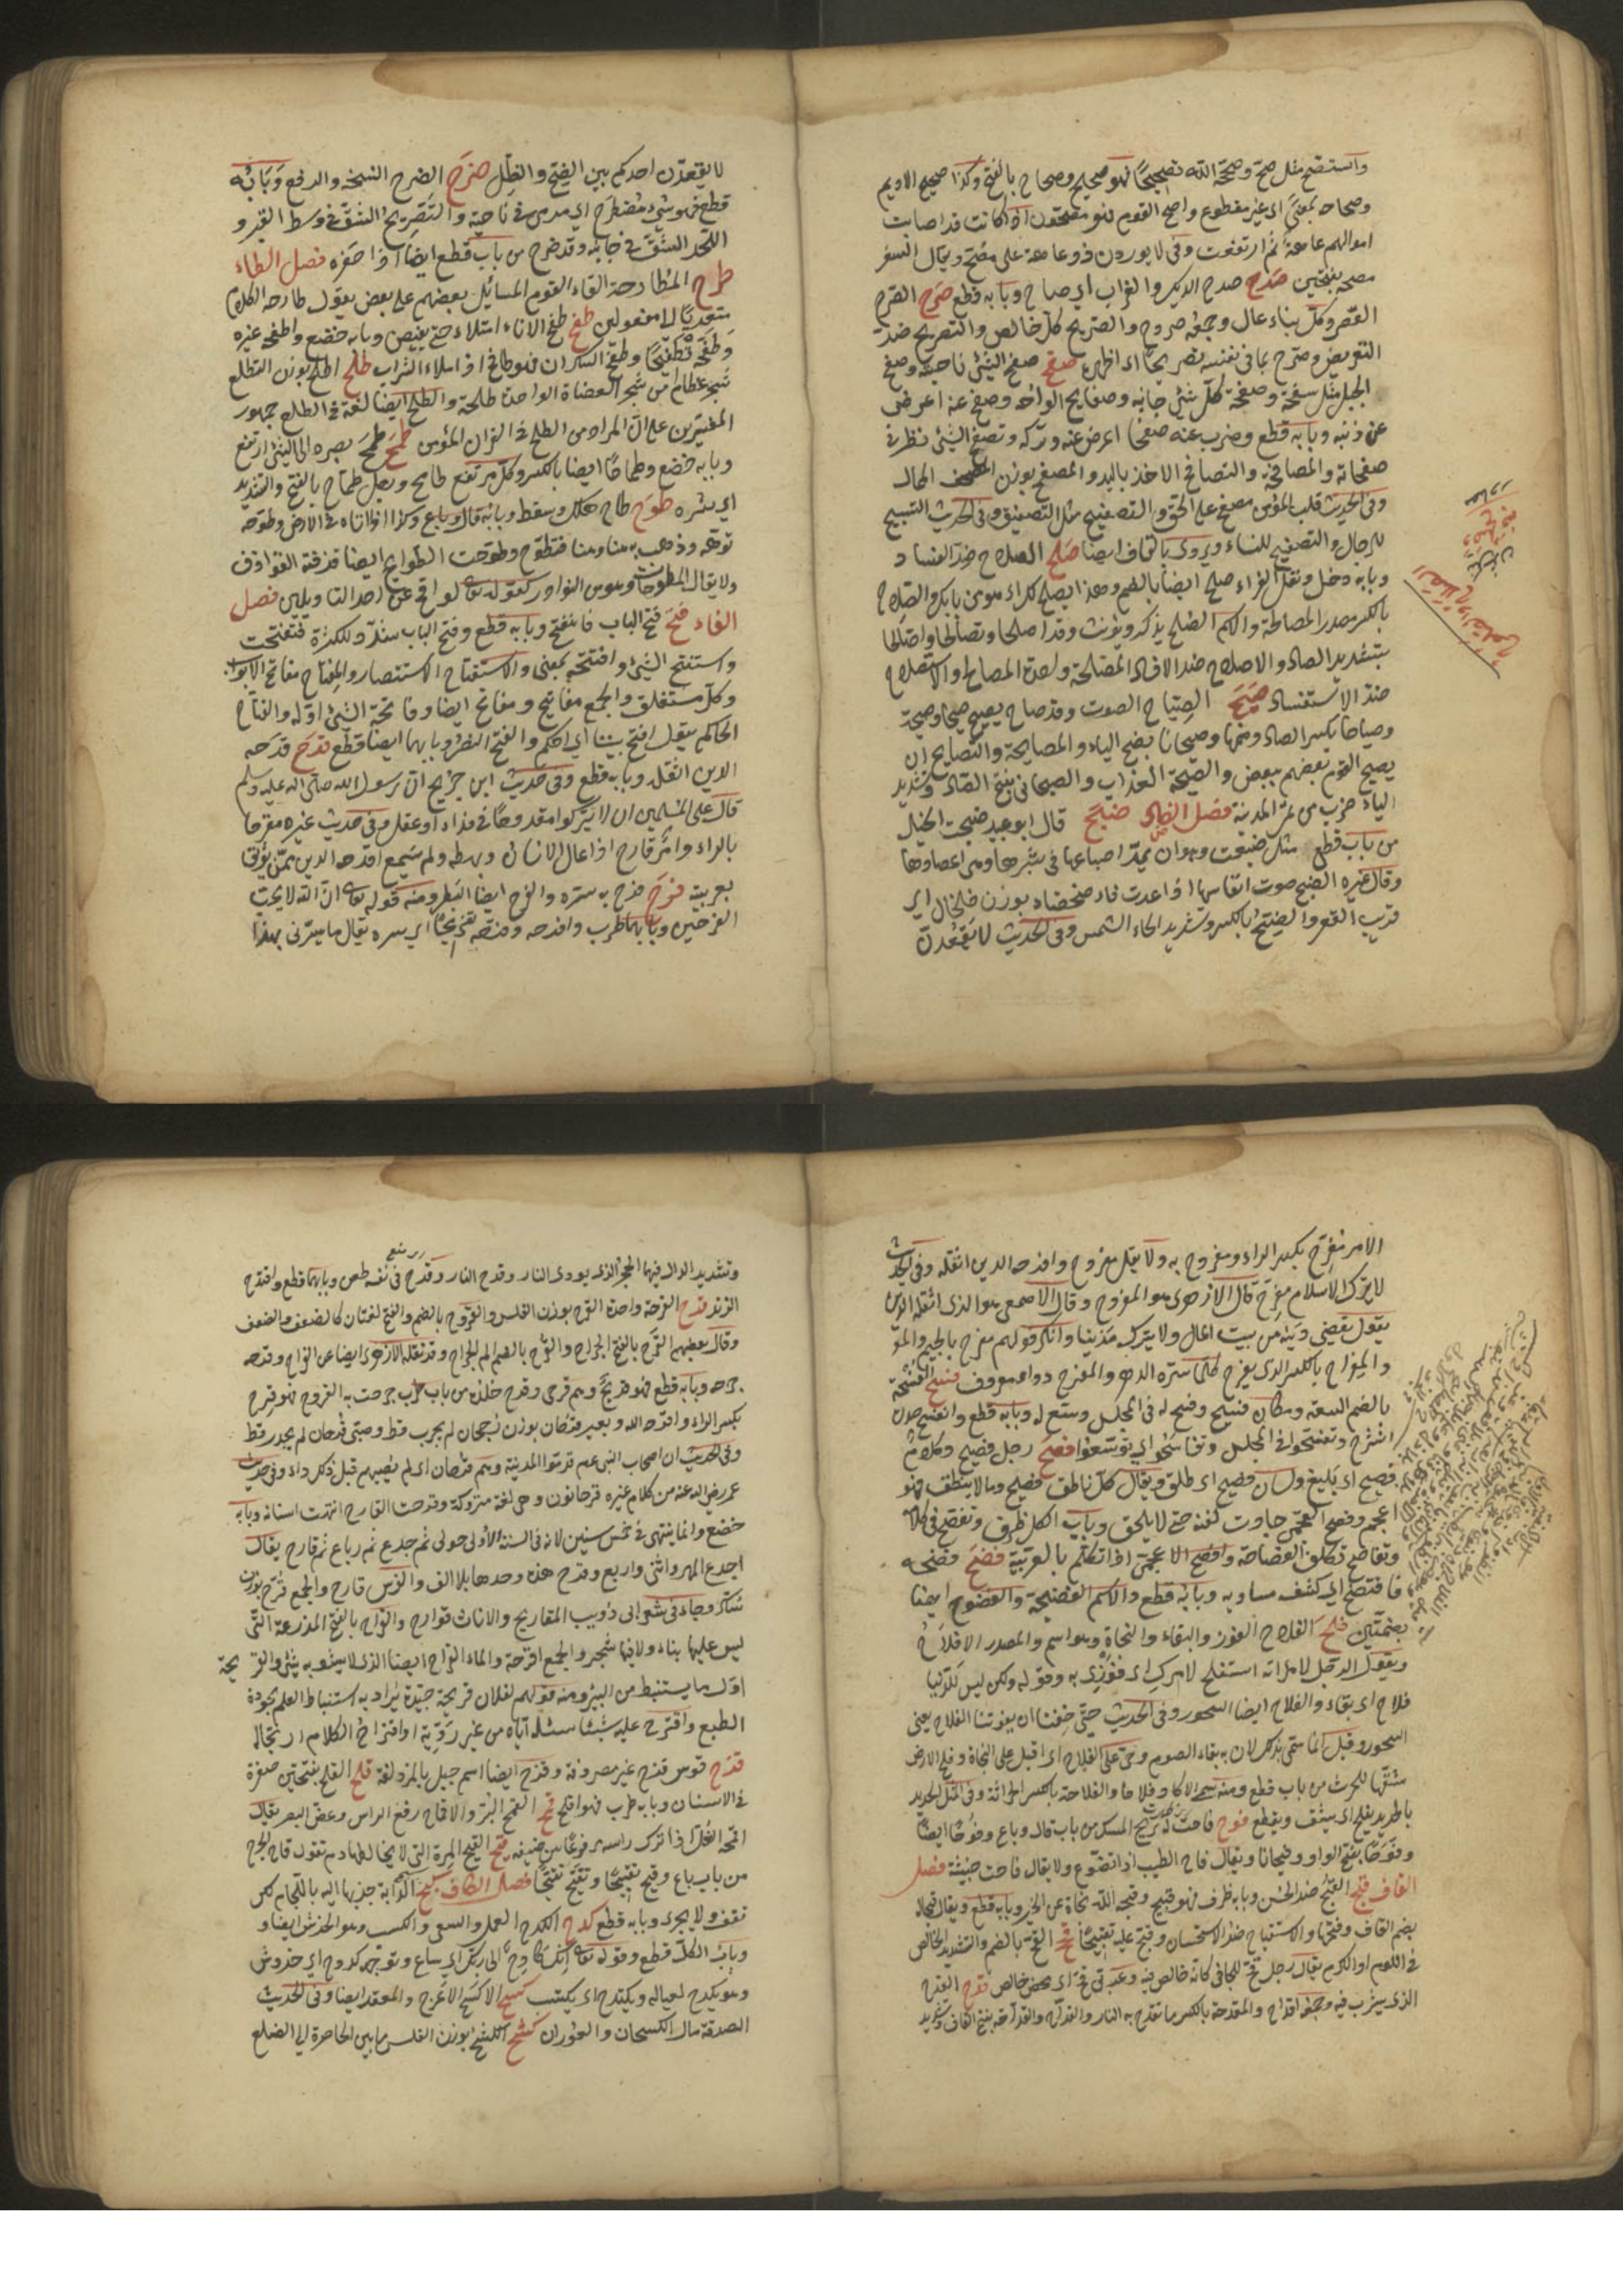 واستصح مثل صح وصححه الله تصحيحًا فهو صحيح وصحاح بالفتح وكذا صحيح الاديم
وصحاحه بمعنى اى غير مقطوع واصح القوم فهو مصحون اذا كانت قد اصابت
اموالهم عاهة ثم ارتفعت وفى لا يوردن ذو عاهة على مصح ويقال السفر
مصحة بفتحتين صدح صدح الديك والغراب اى صاح وبابه قطع صرح الصرح
القصر وكل بناء عال وجمعه صروح والصريح كل خالص والتصريح ضد
التعريض وصرح بما فى نفسه تصريحًا اى اظهره صفح صفح الشئ ناحيته وصفح
الجبل مثل سفحه وصفحة كل شئ جانبه وصفايح الواحه وصفح عنه اعرض
عن ذنبه وبابه قطع وضرب عنه صفحا اعرض عنه وتركه وتصفح الشئ نظر فى
صفحاته والمصافحة والتصافح الاخذ باليد والمصفح بوزن المصحف الممال
وفى الحديث قلب المؤمن مصفح على الحق والتصفيح مثل التصفيق وفى الحديث التسبيح
للرجال والتصفيح للنساء ويروى بالقاف ايضا صلح الصلاح ضد الفساد
وبابه دخل ونقل الفراء صلح ايضا بالضم وهذا يصلح لك اى هو من بابك والصلاح
بالكسر مصدر المصالحة والاسم الصلح يذكر ويؤنث وقد اصطلحا وتصالحا واصّالحا
بتشديد الصاد والاصلاح ضد الافساد المصلحة واحدة المصالح والاستصلاح
ضد الاستفساد صيح الصياح الصوت وقد صاح يصيح صيحا وصيحة
وصياحا بكسر الصاد وضمها وصيحانا بفتح الياء والمصايحة والتصايح ان
يصيح القوم بعضهم ببعض والصيحة العذاب والصيحانى بفتح الصاد وتشديد
الياء ضرب من تمر المدينة فصل الضاد ضبح قال ابو عبيد ضبحت الخيل
من باب قطع مثل ضبعت وهو ان تمد اضباعها فى سيرها وهى اعضادها
وقال غيره الضبح صوت انفاسها اذا عدت ضحضح ماء ضحضاح بوزن خلخال اى
قريب القعر والضح بالكسر وتشديد الحاء الشمس وفى الحديث لا يقعدن
لا يقعدن احدكم بين الضح والظل ضرح الضرح التنحية والدفع وبابه
قطع فهو شئ مضطرح اى مرمى فى ناحية والضريح الشق فى وسط القبر و
اللحد الشق فى جانبه وقد ضرح من باب قطع ايضا اذا حفره فصل الطاء
طرح المطارحة القاء القوم المسائل بعضهم على بعض يقول طارحه الكلام
متعديًا الى مفعولين طفح طفح الاناء امتلاء حتى يفيض وبابه خضع واطفحه غيره
وطفحه تطفيحا وطفح السكران فهو طافح اذا ملاءه الشراب طلح الطلح بوزن الطلع
شجر عظام من شجر العضاة الواحدة طلحة والطلح ايضا لغة فى الطلع جمهور
المفسرين على ان المراد من الطلح فى القران الموز طمح طمح بصره الى الشئ ارتفع
وبابه خضع وطماحًا ايضا بالكسر وكل مرتفع طامح ورجل طماح بالفتح والتشديد
اى شره طوح طاح هلك وسقط وبابه قال وباع وكذا اذا تاه فى الارض وطوحه
توهه وذهب به هنا وهنا فتطوح وطوحت الطوايح ايضا قذفته القواذف
ولا يقال المطوحات وهو من النوادر كقوله تعالى لواقح على احد التاويلين فصل
الفاء فتح فتح الباب فانفتح وبابه قطع وفتح الباب شدد للكثرة فتفتحت
واستفتح الشئ وافتتحه بمعنى والاستفتاح الاستنصار والمفتاح مفتاح الابواب
وكل مستغلق والجمع مفاتيح ومفاتح ايضا وفاتحة الشئ اوله والفتاح
الحاكم يقول افتح بيننا اى احكم والفتح النصر وبابهما ايضا قطع فدح فدحه
الدين اثقله وبابه قطع وفى حديث ابن جريج ان رسول الله صلى الله عليه وسلم
قال على المسلمين ان لا يتركوا مفدوحًا فى فداء او عقل وفى حديث غيره مفرحا
بالراء وامر فادح اذا عال الانسان وبهظه ولم يسمع افدحه الدين ممن يوثق
بعربيته فرح فرح به سره والفرح ايضا البطر ومنه قوله تعالى ان الله لا يحب
الفرحين وبابهما طرب وافرحه وفرحه تفريحًا اى سره يقال ما يسرنى بهذا
الامر مفرح بكسر الراء ومفروح به ولا يقل مفروح وافدحه الدين اثقله وفى الحديث
لا يترك فى الاسلام مفرح قال الازهرى هو المفروح وقال الاصمعى هو الذى اثقله الدين
يقول يقضى دينه من بيت المال ولا يترك مدينا وانكر قولهم مفرج بالجيم والمؤ
والمفراح بالكسر الذى يفرح كلما سره الدهر والمفرح دواء معروف فسح الفسحة
بالضم السعة ومكان فسيح وفسح له فى المجلس وسع له وبابه قطع وانفسح صدره
انشرح وتفسحوا فى المجلس وتفاسحوا اى توسعوا فصح رجل فصيح وكلام
فصيح اى بليغ ولسان فصيح اى طلق ويقال كل ناطق فصيح وما لا ينطق فهو
اعجم وفصح العجمى جادت لغته حتى لا يلحن وبابه الكل ظرف وتفصح فى كلامه
وتفاصح تكلف الفصاحة وافصح الاعجمى اذا تكلم بالعربية فضح فضحه
فافتضح اى كشف مساويه وبابه قطع والاسم الفضيحة والفضوح ايضا
بضمتين فلح الفلاح الفوز والبقاء والنجاة وهو اسم والمصدر الافلاح
ويقول الرجل لامراته استفلحى بامرك اى فوزى به وقوله ولكن ليس للدنيا
فلاح اى بقاء والفلاح ايضا السحور وفى الحديث حتى خفنا ان يفوتنا الفلاح يعنى
السحور وقيل انما سمى بذلك لان به بقاء الصوم وحى على الفلاح اى اقبل على النجاة وفلح الارض
شقها للحرث من باب قطع ومنه سمى الاكار فلاحا والفلاحة بالكسر الحراثة وفى المثل الحديد
بالحديد يفلح اى يشق ويقطع فوح فاحت ريح المسك من باب قال وباع وفووحًا ايضًا
وفوحانا بفتح الواو وفيحانا ويقال فاح الطيب اذا تضوع ولا يقال فاحت ريح خبيثة فصل
القاف قبح القبح ضد الحسن وبابه ظرف فهو قبيح وقبحه الله نحاه عن الخير وبابه قطع ويقال قبحا له
بضم القاف وفتحها والاستقباح ضد الاستحسان وقبح عليه تقبيحًا قحح القح بالضم والتشديد الخالص
فى اللؤم او الكرم يقال رجل قح للجافى كانه خالص فيه وعربى قح اى محض خالص قدح القدح
الذى يشرب فيه وجمعه اقداح والمقدحة بالكسر ما تقدح به النار والقداح والقداحة بفتح القاف وتشديد
وتشديد الدال فيهما الحجر الذى يورى النار وقدح النار وقدح فى نسبه طعن وبابهما قطع واقتدح
الزند قرح القرحة واحدة القرح بوزن الفلس والقروح بالضم والفتح لغتان كالضعف والضعف
وقال بعضهم القرح بالفتح الجراح والقرح بالضم الم الجراح وقد نقله الازهرى ايضا عن الفراء وقرحه
جرحه وبابه قطع فهو قريح وهم قرحى وقرح جلده من باب طرب خرجت به القروح فهو قرح
بكسر الراء واقرحه الله وبعير قرحان بوزن رجحان لم يجرب قط وصبى قرحان لم يجدر قط
وفى الحديث ان اصحاب النبى عم قدموا المدينة وهم قرحان اى لم يصبهم قبل ذلك داء وفى حديث
عمر رضى الله عنه من كلام غيره قرحانون وهى لغة متروكة وقرحت القارح انتهت اسنانه وبابه
خضع وانما ينتهى فى خمس سنين لانه فى السنة الاولى حولى ثم جذع ثم رباع ثم قارح يقال
اجذع المهر واثنى واربع وقرح هذه وحدها بلا الف والفرس قارح والجمع قرح بوزن
سكر وجاء فى شعر ابى ذويب المقاريح والاناث قوارح والقراح بالفتح المزرعة التى
ليس عليها بناء ولا فيها شجر والجمع اقرحة والماء القراح ايضا الذى لا يشوبه شئ والقريحة
اول ما يستنبط من البئر ومنه قولهم لفلان قريحة جيدة يراد به استنباط العلم بجودة
الطبع واقترح عليه شيئا سئله اياه من غير روية واقتراح الكلام ارتجاله
قزح قوس قزح غير مصروفة وقزح ايضا اسم جبل بالمزدلفة قلح القلح بفتحتين صفرة
فى الاسنان وبابه طرب فهو اقلح قمح القمح البر والاقماح رفع الراس وغض البصر يقال
اقمحه الغل اذا ترك راسه مرفوعا من ضيقه قيح القيح المدة التى لا يخالطها دم تقول قاح الجرح
من باب باع وقيح تقييحًا وتقيح تقيحًا فصل الكاف كبح كبح الدابة جذبها اليه باللجام لكى
تقف ولا يجرى وبابه قطع كدح الكدح العمل والسعى والكسب وهو الخدش ايضا و
وباب الكل قطع وقوله تعالى انك كادح الى ربك اى ساع وبوجهه كدوح اى خدوش
وهو يكدح لعياله ويكتدح اى يكتسب كسح الاكسح الاعرج والمقعد ايضا وفى الحديث
الصدقة مال الكسحان والعوران كشح الكشح بوزن الفلس ما بين الخاصرة الى الضلع